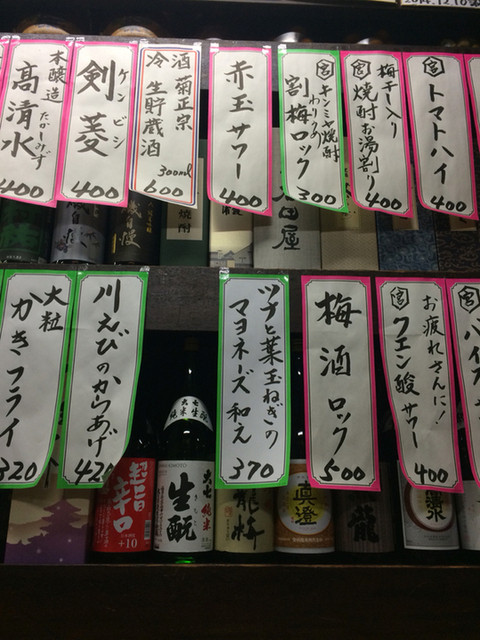 宮
トマトハイ
400
宮
梅干し入り
焼酎お湯割り
400
宮
キンミヤ焼酎
割梅ロック
わりうめ
300
赤玉サワー
400
酒 菊正宗
冷 生貯蔵酒
300ml
600
剣菱
ケンビシ
400
本醸造
高清水
たかしみず
400
焼酎
宮
お疲れさんに!
クエン酸サワー
400
梅酒ロック
500
ツナと葉玉ねぎの
マヨネーズ和え
370
川えびのからあげ
420
大粒
かきフライ
320
超旨
辛口
+10
大七
純米生酛
大七 純米
生酛
眞澄
龍